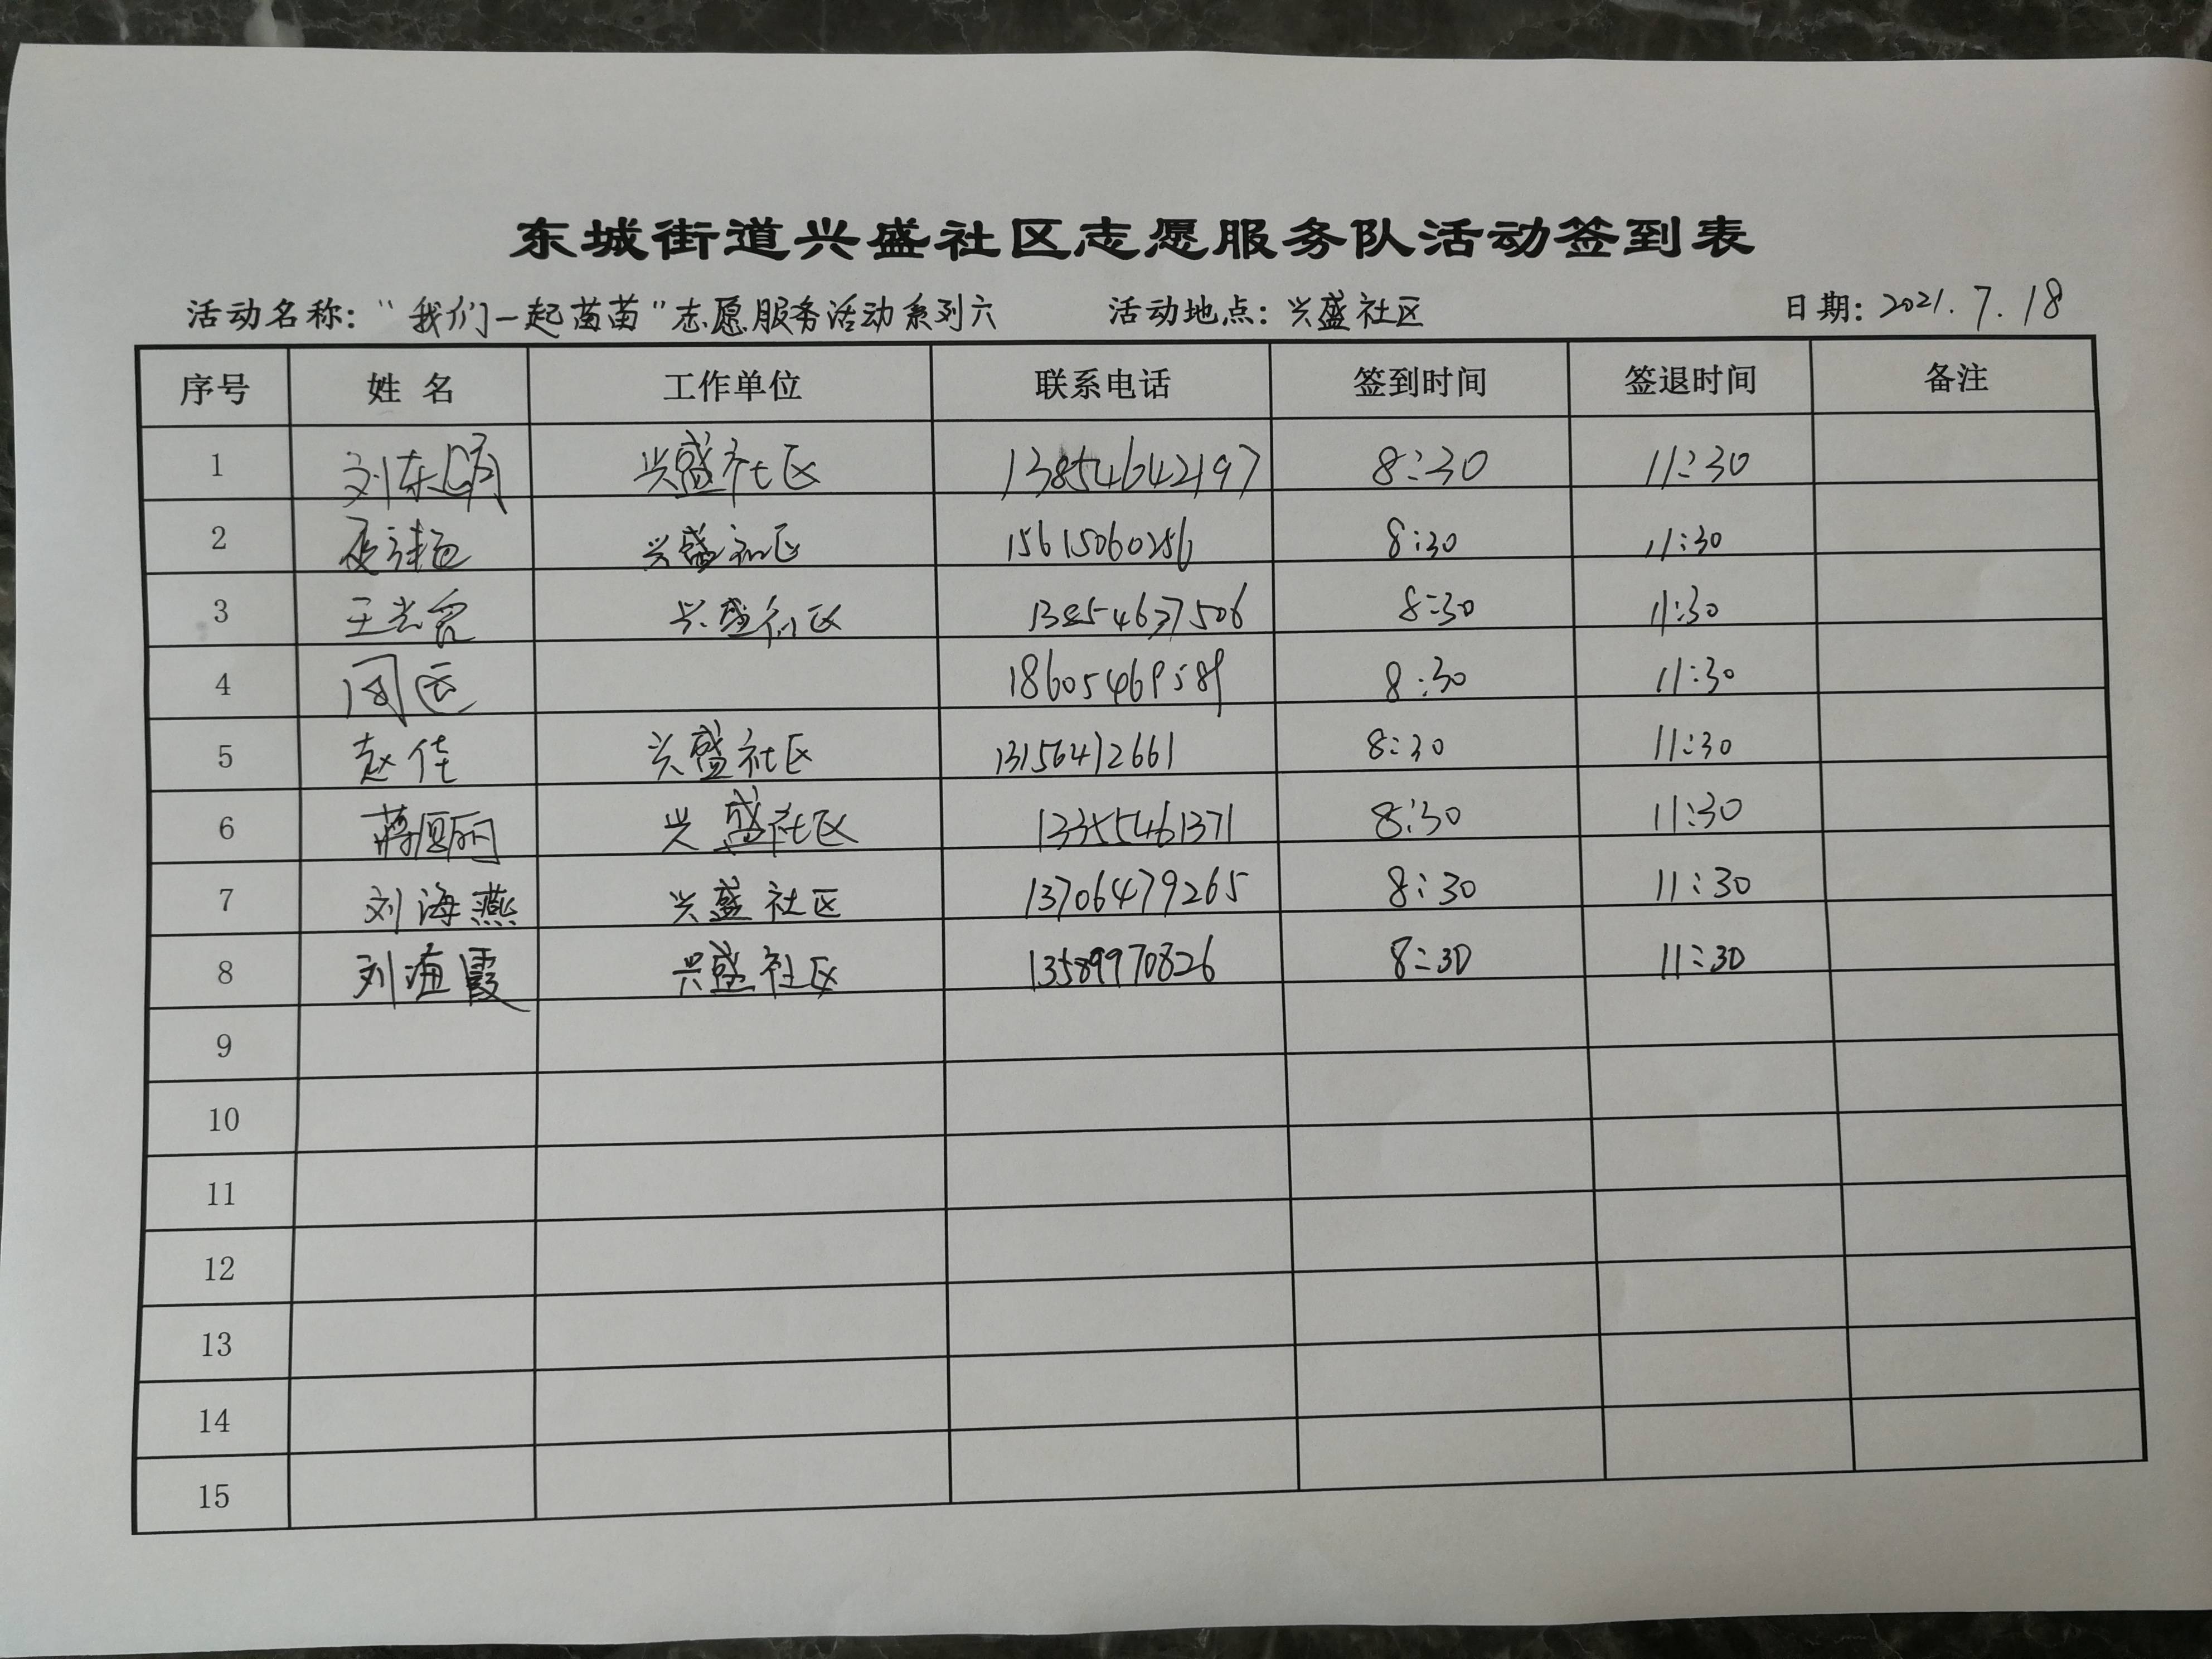 东城街道兴盛社区志愿服务队活动签到表
活动名称：“我们一起苗苗”志愿服务活动系列六 活动地点：兴盛社区 日期：2021.7.18
序号 姓名 工作单位 联系电话 签到时间 签退时间 备注
1 兴盛社区 13854642197 8:30 11:30
2 兴盛社区 15615060256 8:30 11:30
3 兴盛社区 13854637506 8:30 11:30
4 18605469589 8:30 11:30
5 赵佳 兴盛社区 13156412661 8:30 11:30
6 兴盛社区 13355461371 8:30 11:30
7 刘海燕 兴盛社区 13706479265 8:30 11:30
8 刘海霞 兴盛社区 13589970826 8:30 11:30
9
10
11
12
13
14
15